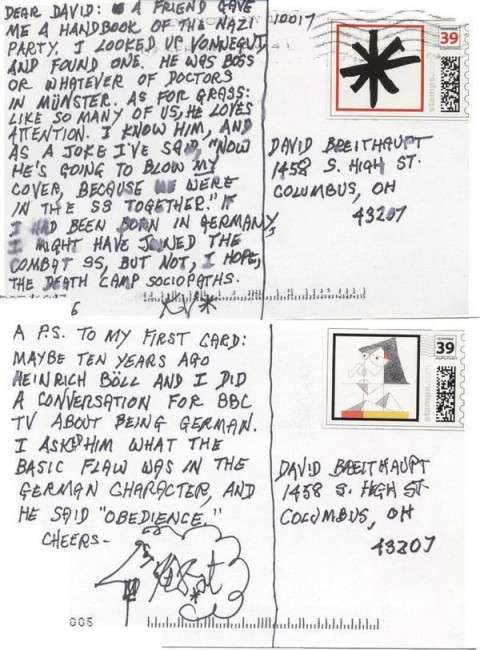 DEAR DAVID: A FRIEND GAVE
ME A HANDBOOK OF THE NAZI
PARTY. I LOOKED UP VONNEGUT,
AND FOUND ONE. HE WAS BOSS
OR WHATEVER OF DOCTORS
IN MÜNSTER. AS FOR GRASS:
LIKE SO MANY OF US, HE LOVES
ATTENTION. I KNOW HIM, AND
AS A JOKE I'VE SAID, "NOW
HE'S GOING TO BLOW MY
COVER, BECAUSE WE WERE
IN THE SS TOGETHER." IF
I HAD BEEN BORN IN GERMANY,
I MIGHT HAVE JOINED THE
COMBAT SS, BUT NOT, I HOPE,
THE DEATH CAMP SOCIOPATHS.
KV*
10017
39
stamps.com
DAVID BREITHAUPT
1458 S. HIGH ST.
COLUMBUS, OH
43207
6
A P.S. TO MY FIRST CARD:
MAYBE TEN YEARS AGO
HEINRICH BÖLL AND I DID
A CONVERSATION FOR BBC
TV ABOUT BEING GERMAN.
I ASKED HIM WHAT THE
BASIC FLAW WAS IN THE
GERMAN CHARACTER, AND
HE SAID "OBEDIENCE."
CHEERS-
39
stamps.com
DAVID BREITHAUPT
1458 S. HIGH ST.
COLUMBUS, OH
43207
005